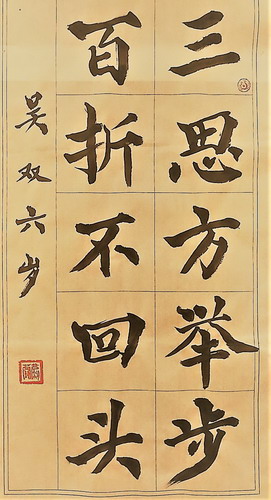 三思方举步
百折不回头
吴双六岁